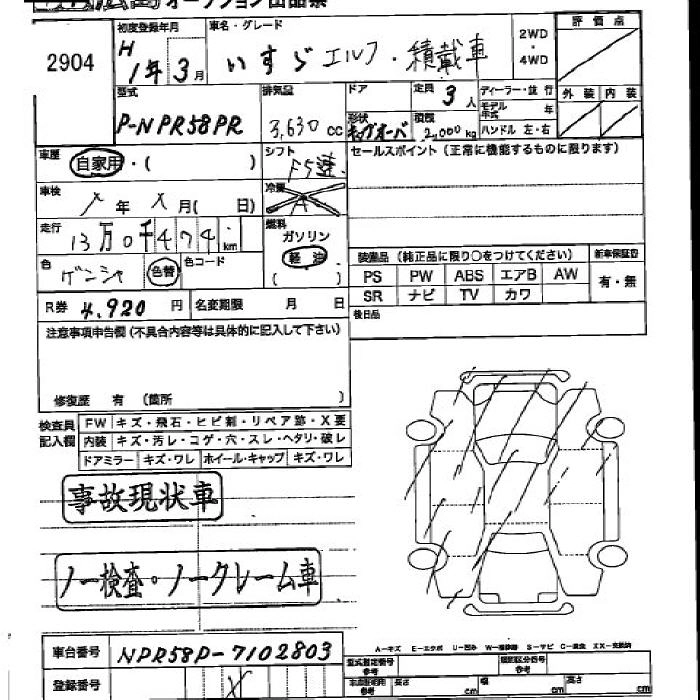 オークション出品票
2904
初度登録年月 車名・グレード
H 1年 3月 いすゞエルフ・積載車
2WD ・ 4WD
評価点
型式 排気量 ドア 定員 3人 ディーラー・並行
モデル年式 年
外装 内装
P-NPR58PR 3,630cc 形状 積載 2,000kg ハンドル 左・右
車歴 自家用・( ) シフト F5速 セールスポイント(正常に機能するものに限ります)
車検 X年 X月( 日) 冷房 A
走行 13万0千474km 燃料 ガソリン 軽油 ( )
装備品(純正品に限り○をつけてください) 新車保証書
色 ゲンシャ 色替 色コード
PS PW ABS エアB AW 有・無
SR ナビ TV カワ
R券 4,920円 名変期限 月 日
後日品
注意事項申告欄(不具合内容等は具体的に記入して下さい)
修復歴 有 (箇所 )
検査員記入欄 FW キズ・飛石・ヒビ割・リペア跡・X要
内装 キズ・汚レ・コゲ・穴・スレ・ヘタリ・破レ
ドアミラー キズ・ワレ ホイールキャップ キズ・ワレ
事故現状車
ノー検査・ノークレーム車
車台番号 NPR58P-7102803
A-キズ E-エクボ U-凹み S-サビ
型式指定番号 類別区分番号
登録番号 X 長さ cm 幅 cm 高さ cm